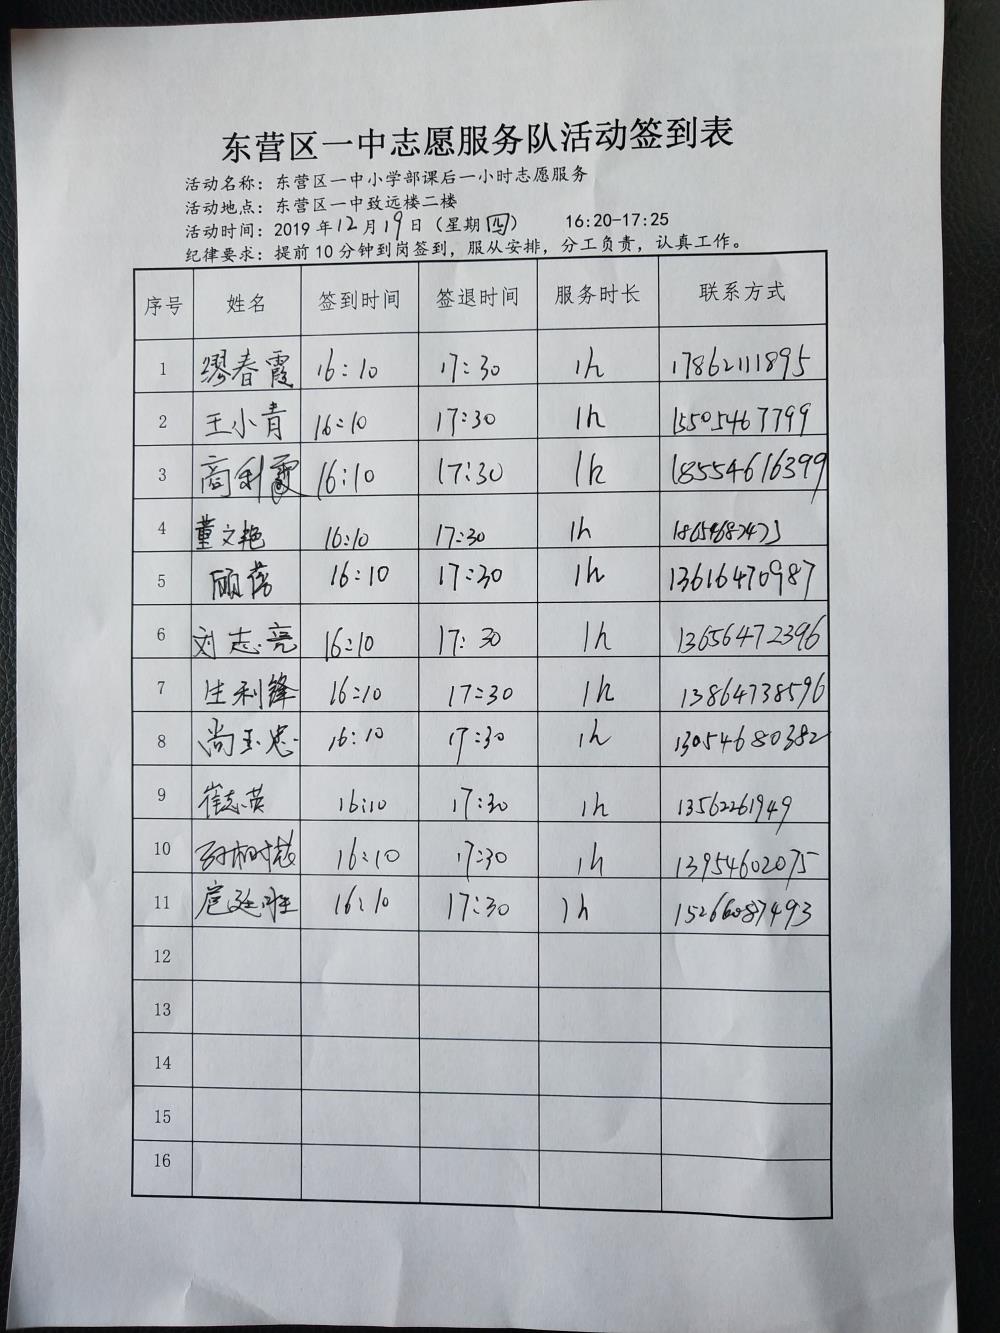 东营区一中志愿服务队活动签到表
活动名称：东营区一中小学部课后一小时志愿服务
活动地点：东营区一中致远楼二楼
活动时间：2019年12月19日（星期四） 16:20-17:25
纪律要求：提前10分钟到岗签到，服从安排，分工负责，认真工作。
序号 姓名 签到时间 签退时间 服务时长 联系方式
1 缪春霞 16:10 17:30 1h 17862111895
2 王小青 16:10 17:30 1h 15505467799
3 商利霞 16:10 17:30 1h 18554616399
4 董文艳 16:10 17:30 1h
5 顾蓓 16:10 17:30 1h 13616470987
6 刘志亮 16:10 17:30 1h 13656472396
7 生利锋 16:10 17:30 1h 13864738596
8 尚玉忠 16:10 17:30 1h 13054680382
9 崔志英 16:10 17:30 1h 13562261949
10 16:10 17:30 1h 13954602075
11 16:10 17:30 1h 15266087493
12
13
14
15
16